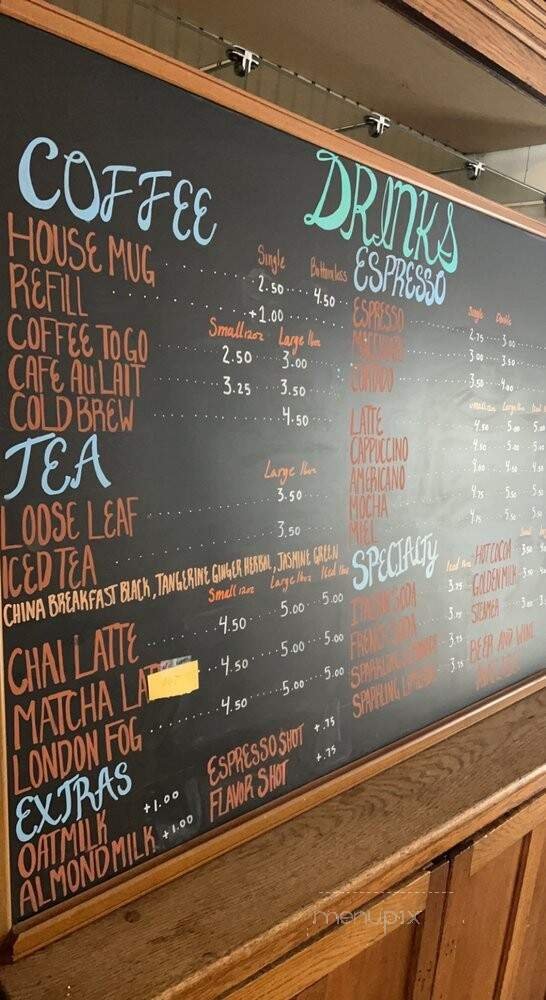 DRINKS
COFFEE
Single Bottomless
HOUSE MUG 2.50 4.50
REFILL +1.00
Small 12oz Large 16oz
COFFEE TO GO 2.50 3.00
CAFE AU LAIT 3.25 3.50
COLD BREW 4.50
TEA
Large 16oz
LOOSE LEAF 3.50
ICED TEA 3.50
CHINA BREAKFAST BLACK, TANGERINE GINGER HERBAL, JASMINE GREEN
Small 12oz Large 16oz Iced 16oz
CHAI LATTE 4.50 5.00 5.00
MATCHA LA 4.50 5.00 5.00
LONDON FOG 4.50 5.00 5.00
EXTRAS
OATMILK +1.00
ALMOND MILK +1.00
ESPRESSO SHOT +.75
FLAVOR SHOT +.75
ESPRESSO
Single Double
ESPRESSO 2.75 3.00
MACCHIATO 3.00 3.50
CORTADO 3.50 4.00
Small 12oz Large 16oz
LATTE 4.50 5.00
CAPPUCCINO 4.50 5.00
AMERICANO
MOCHA
MIEL
SPECIALTY
ITALIAN SODA 3.75
FRENCH SODA 3.75
SPARKLING 3.75
SPARKLING 3.75
HOT COCOA
GOLDEN MILK
STEAMER
BEER AND WINE
menupix